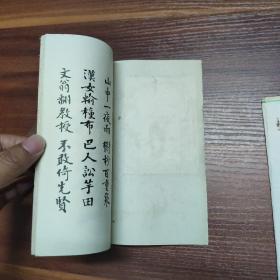 山中一夜雨 樹杪百重泉
漢女輸橦布 巴人訟芋田
文翁翻教授 不敢倚先賢